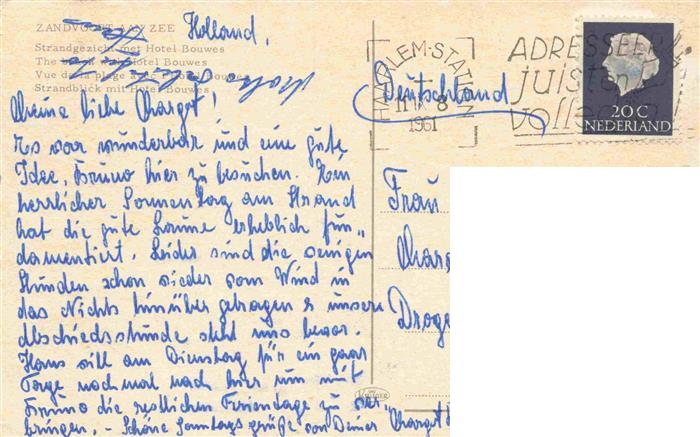 ZANDVOORT AAN ZEE
Strandgezicht met Hotel Bouwes
The beach with Hotel Bouwes
Vue de la plage avec Hotel Bouwes
Strandblick mit Hotel Bouwes
Holland,
Meine liebe Margot!
Es war wunderbar und eine gute
Idee, Bruno hier zu besuchen. Ein
herrlicher Sonnentag am Strand
hat die gute Laune erheblich fun-
damentiert. Leider sind die wenigen
Stunden schon wieder vom Wind in
das Nichts hinüber getragen & unsere
Abschiedsstunde steht uns bevor.
Hans will am Dienstag für ein paar
Tage nochmal nach hier um mit
Bruno die restlichen Ferientage zu ver
bringen. - Schöne Sonntagsgrüße von Deiner "Margot
HAARLEM-STATION
1961
ADRESSEER
juist en
volledig
20 C
NEDERLAND
Deutschland
Frau
Margot
Droge